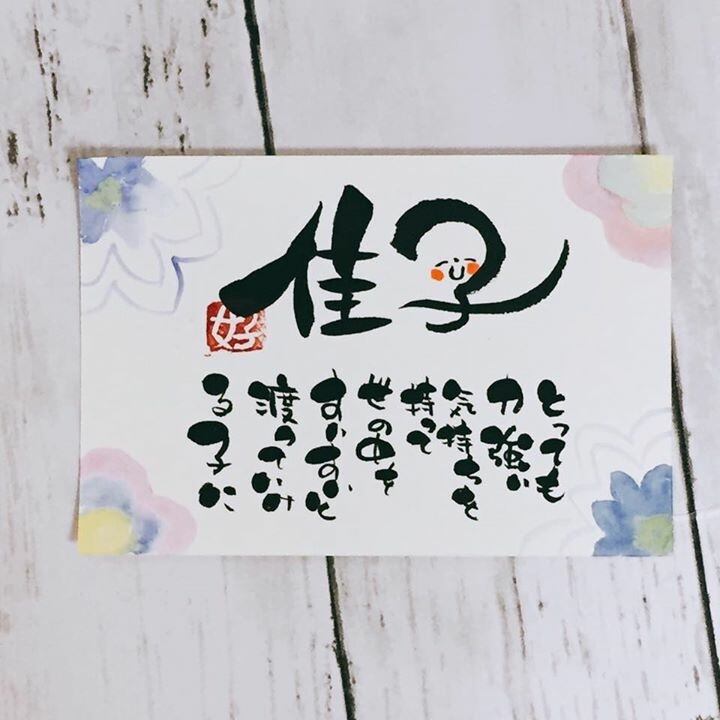 佳子
好
とっても
力強い
気持ちを
持って
世の中を
すいすいと
渡っていけ
る子に